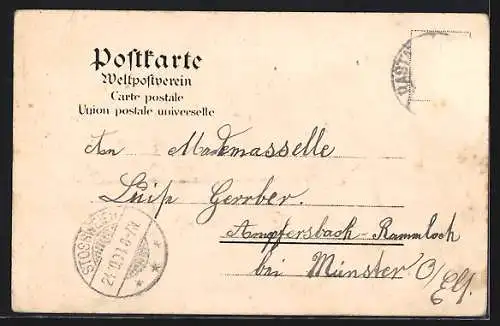 Postkarte
Weltpostverein
Carte postale
Union postale universelle
An Mademasselle
Luip Gerrber.
Ampfersbach-Rammloch
bei Münster O/Els.